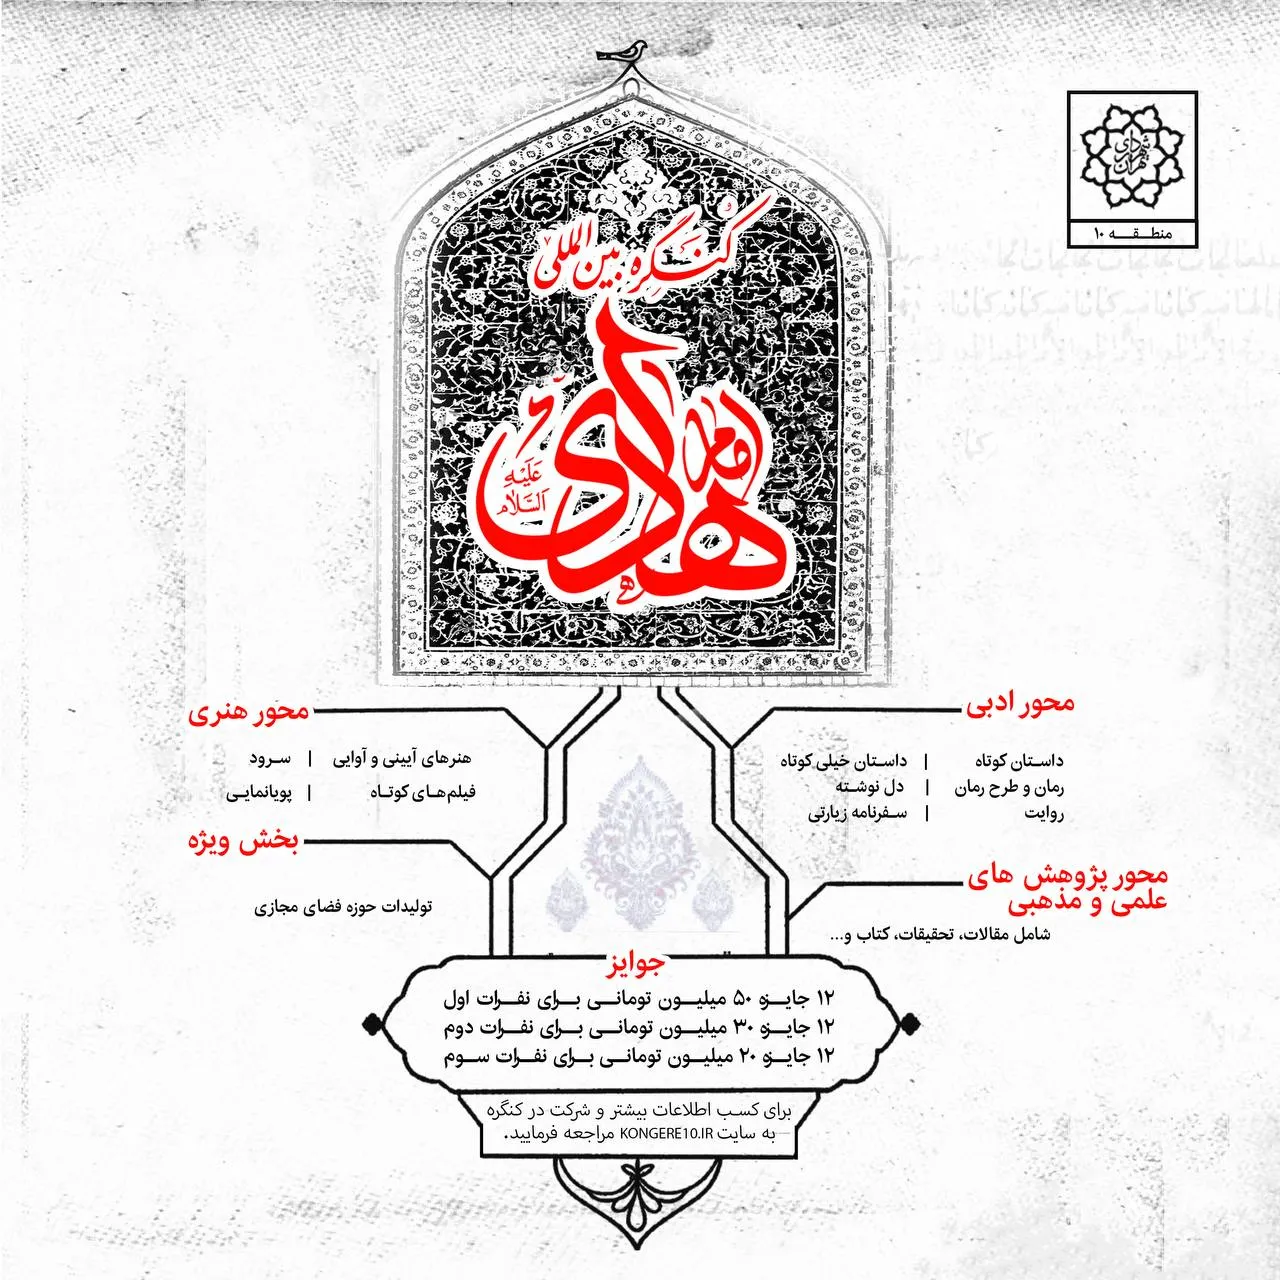 شهرداری تهران
منطقه ۱۰
کنگره بین المللی
امام هادی
عَلَیْهِ
السَّلام
محور ادبی
داستان کوتاه | داستان خیلی کوتاه
رمان و طرح رمان | دل نوشته
روایت | سفرنامه زیارتی
محور هنری
هنرهای آیینی و آوایی | سرود
فیلم‌های کوتاه | پویانمایی
بخش ویژه
تولیدات حوزه فضای مجازی
محور پژوهش های
علمی و مذهبی
شامل مقالات، تحقیقات، کتاب و...
جوایز
۱۲ جایزه ۵۰ میلیون تومانی برای نفرات اول
۱۲ جایزه ۳۰ میلیون تومانی برای نفرات دوم
۱۲ جایزه ۲۰ میلیون تومانی برای نفرات سوم
برای کسب اطلاعات بیشتر و شرکت در کنگره
به سایت KONGERE10.IR مراجعه فرمایید.